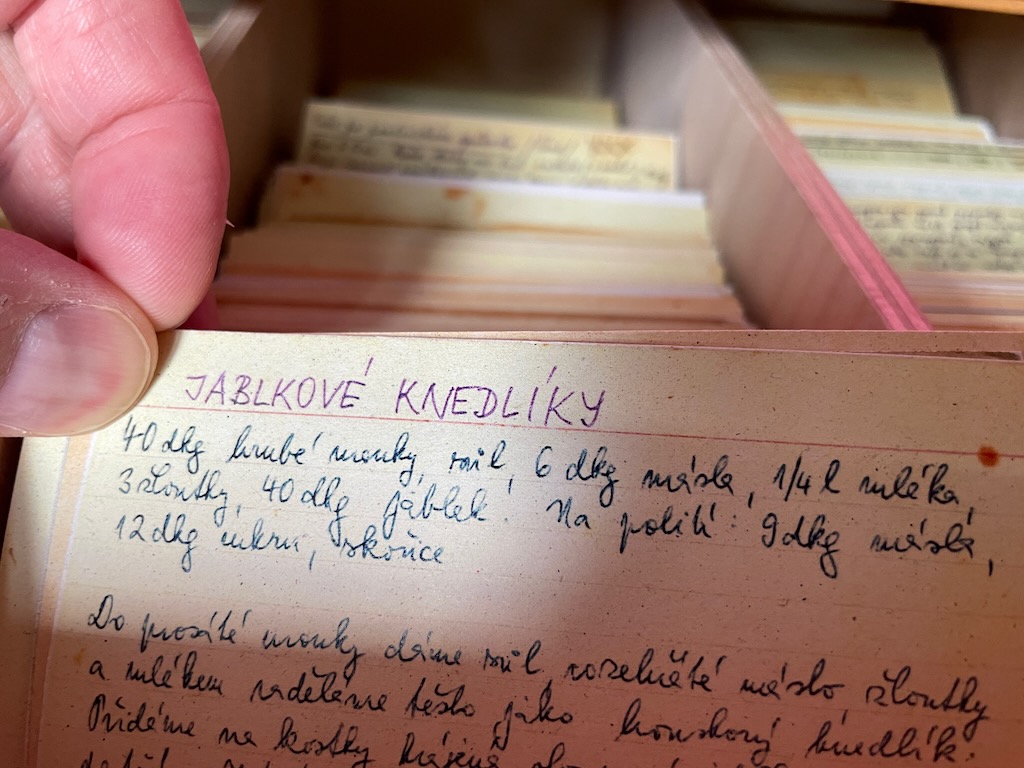 JABLKOVÉ KNEDLÍKY
40 dkg hrubé mouky, sůl, 6 dkg másla, 1/4 l mléka,
3 žloutky, 40 dkg jablek. Na polití: 9 dkg másla,
12 dkg cukru, skořice
Do prosáté mouky dáme sůl, rozehřáté máslo, žloutky
a mlékem zaděláme těsto jako houskový knedlík.
Přidáme na kostky krájená